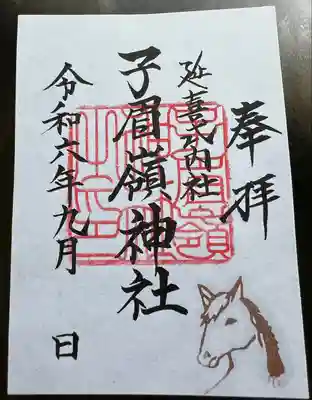 奉拝
延喜式内社
子眉嶺神社
令和六年九月 日